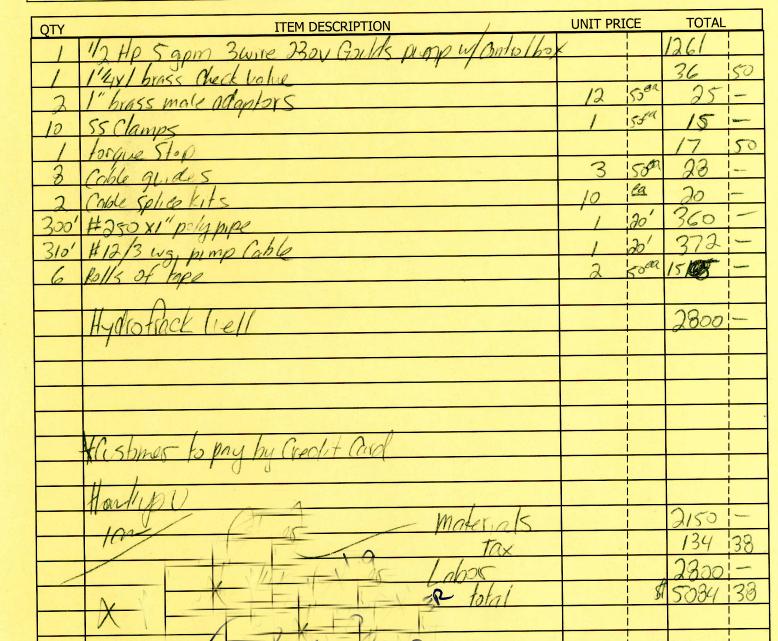 QTY ITEM DESCRIPTION UNIT PRICE TOTAL
1 1/2 Hp 5 gpm 3wire 230v Goulds pump w/Controlbox 1261
1 1"1/4x1 brass Check Valve 36 50
2 1" brass male adaptors 12 50 ea 25 –
10 SS Clamps 1 50 ea 15 –
1 torque Stop 17 50
8 Cable guides 3 50 ea 28 –
2 Cable splice kits 10 ea 20 –
300' #250 x1" poly pipe 1 20' 360 –
310' #12/3 wg, pump Cable 1 20' 372 –
6 Rolls of tape 2 50 ea 15 –
Hydrofrack Well 2800 –
*Customer to pay by Credit Card
Thank you
Materials 2150 –
Tax 134 38
Labor 2800 –
total $ 5084 38
X